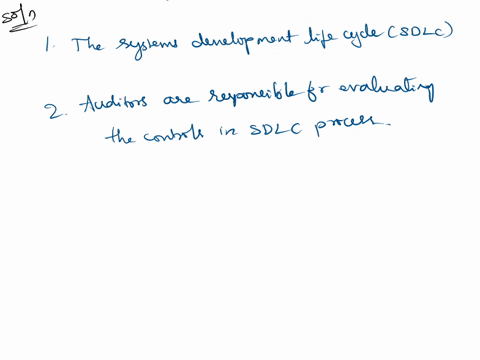 Soln
1. The systems development life cycle (SDLC)
2. Auditors are responsible for evaluating
the controls in SDLC process.